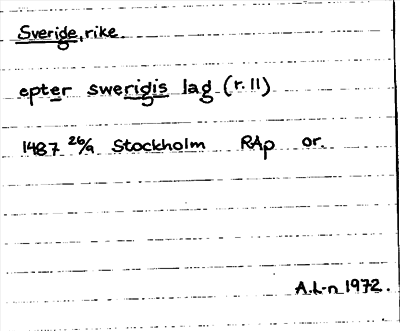 Sverige, rike.
epter swerigis lag (r. 11)
1487 26/9 Stockholm RAp or.
A.L-n 1972.